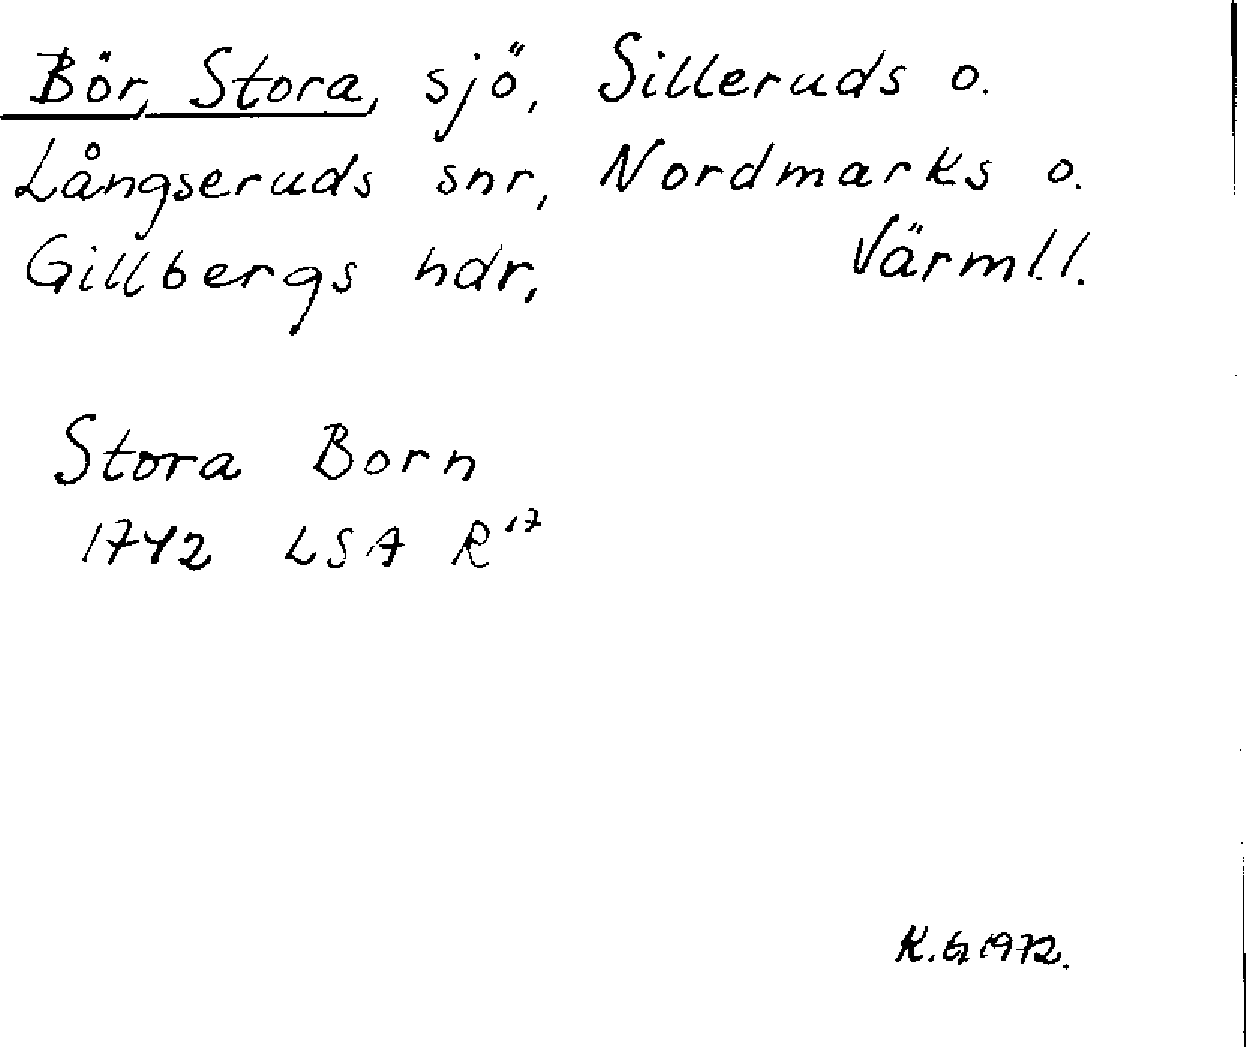 Bör, Stora, sjö, Silleruds o.
Långseruds snr, Nordmarks o.
Gillbergs hdr, Värml.l.
Stora Born
1742 LSA R¹⁷
K.G 1972.